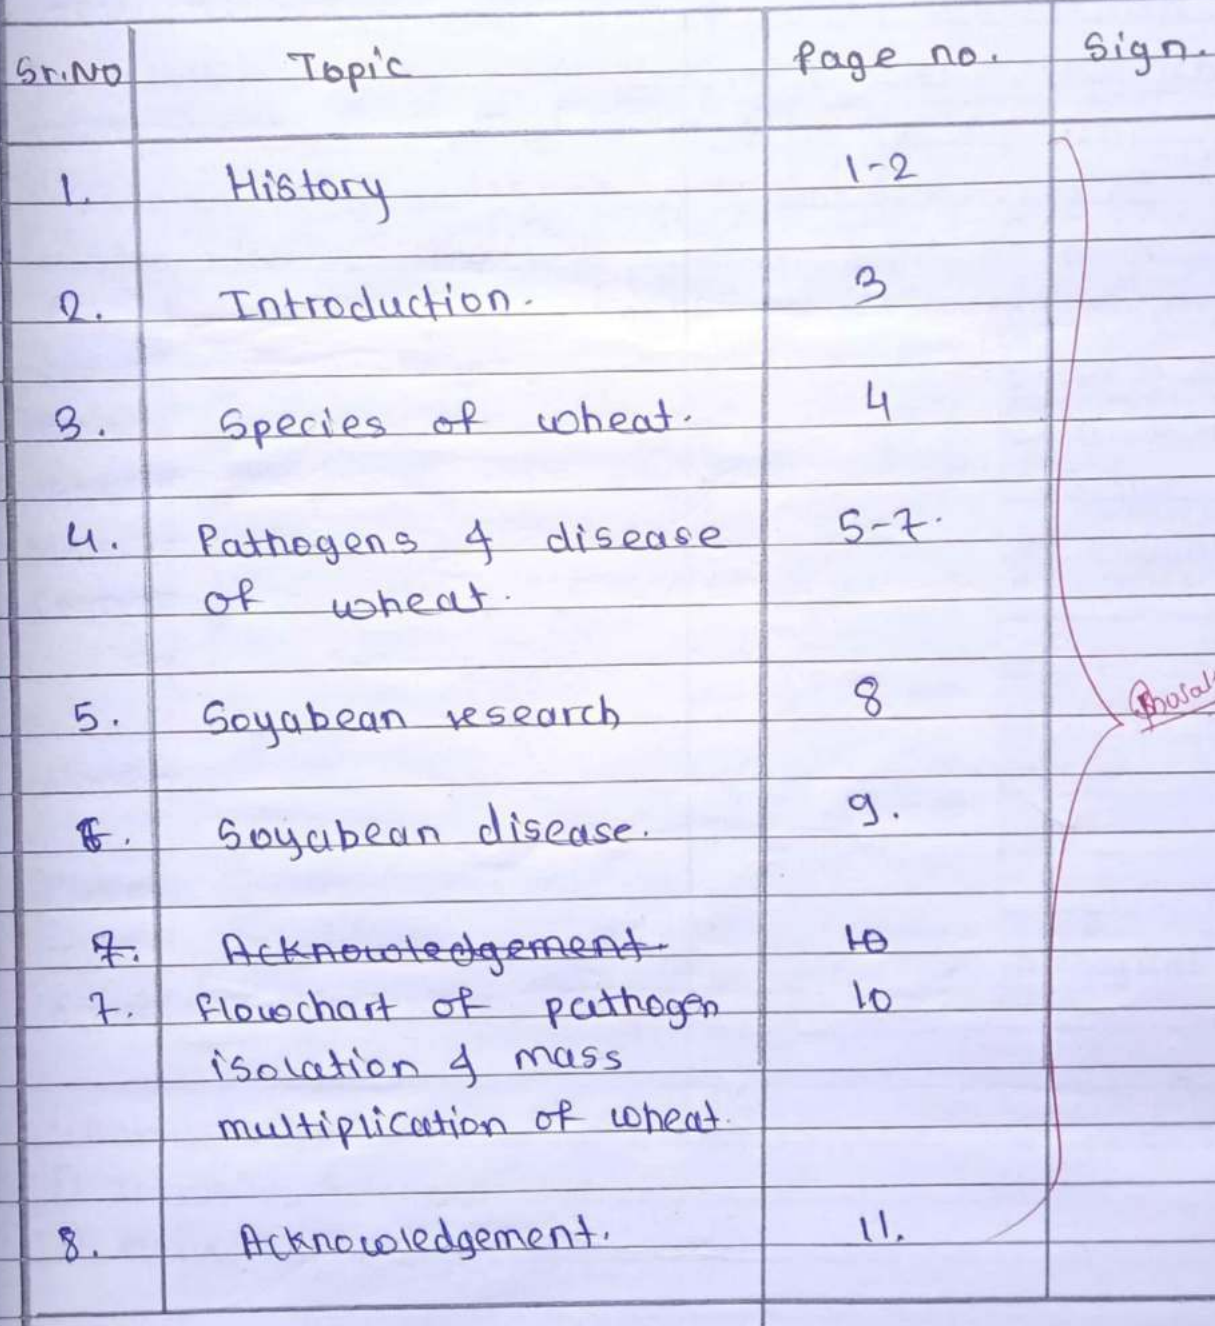 Sr.No Topic Page no. Sign.
1. History 1-2
2. Introduction. 3
3. Species of wheat. 4
4. Pathogens & disease 5-7.
of wheat.
5. Soyabean research 8
6. Soyabean disease. 9.
7. Acknowledgement. 10
7. Flowchart of pathogen 10
isolation & mass
multiplication of wheat.
8. Acknowledgement. 11.